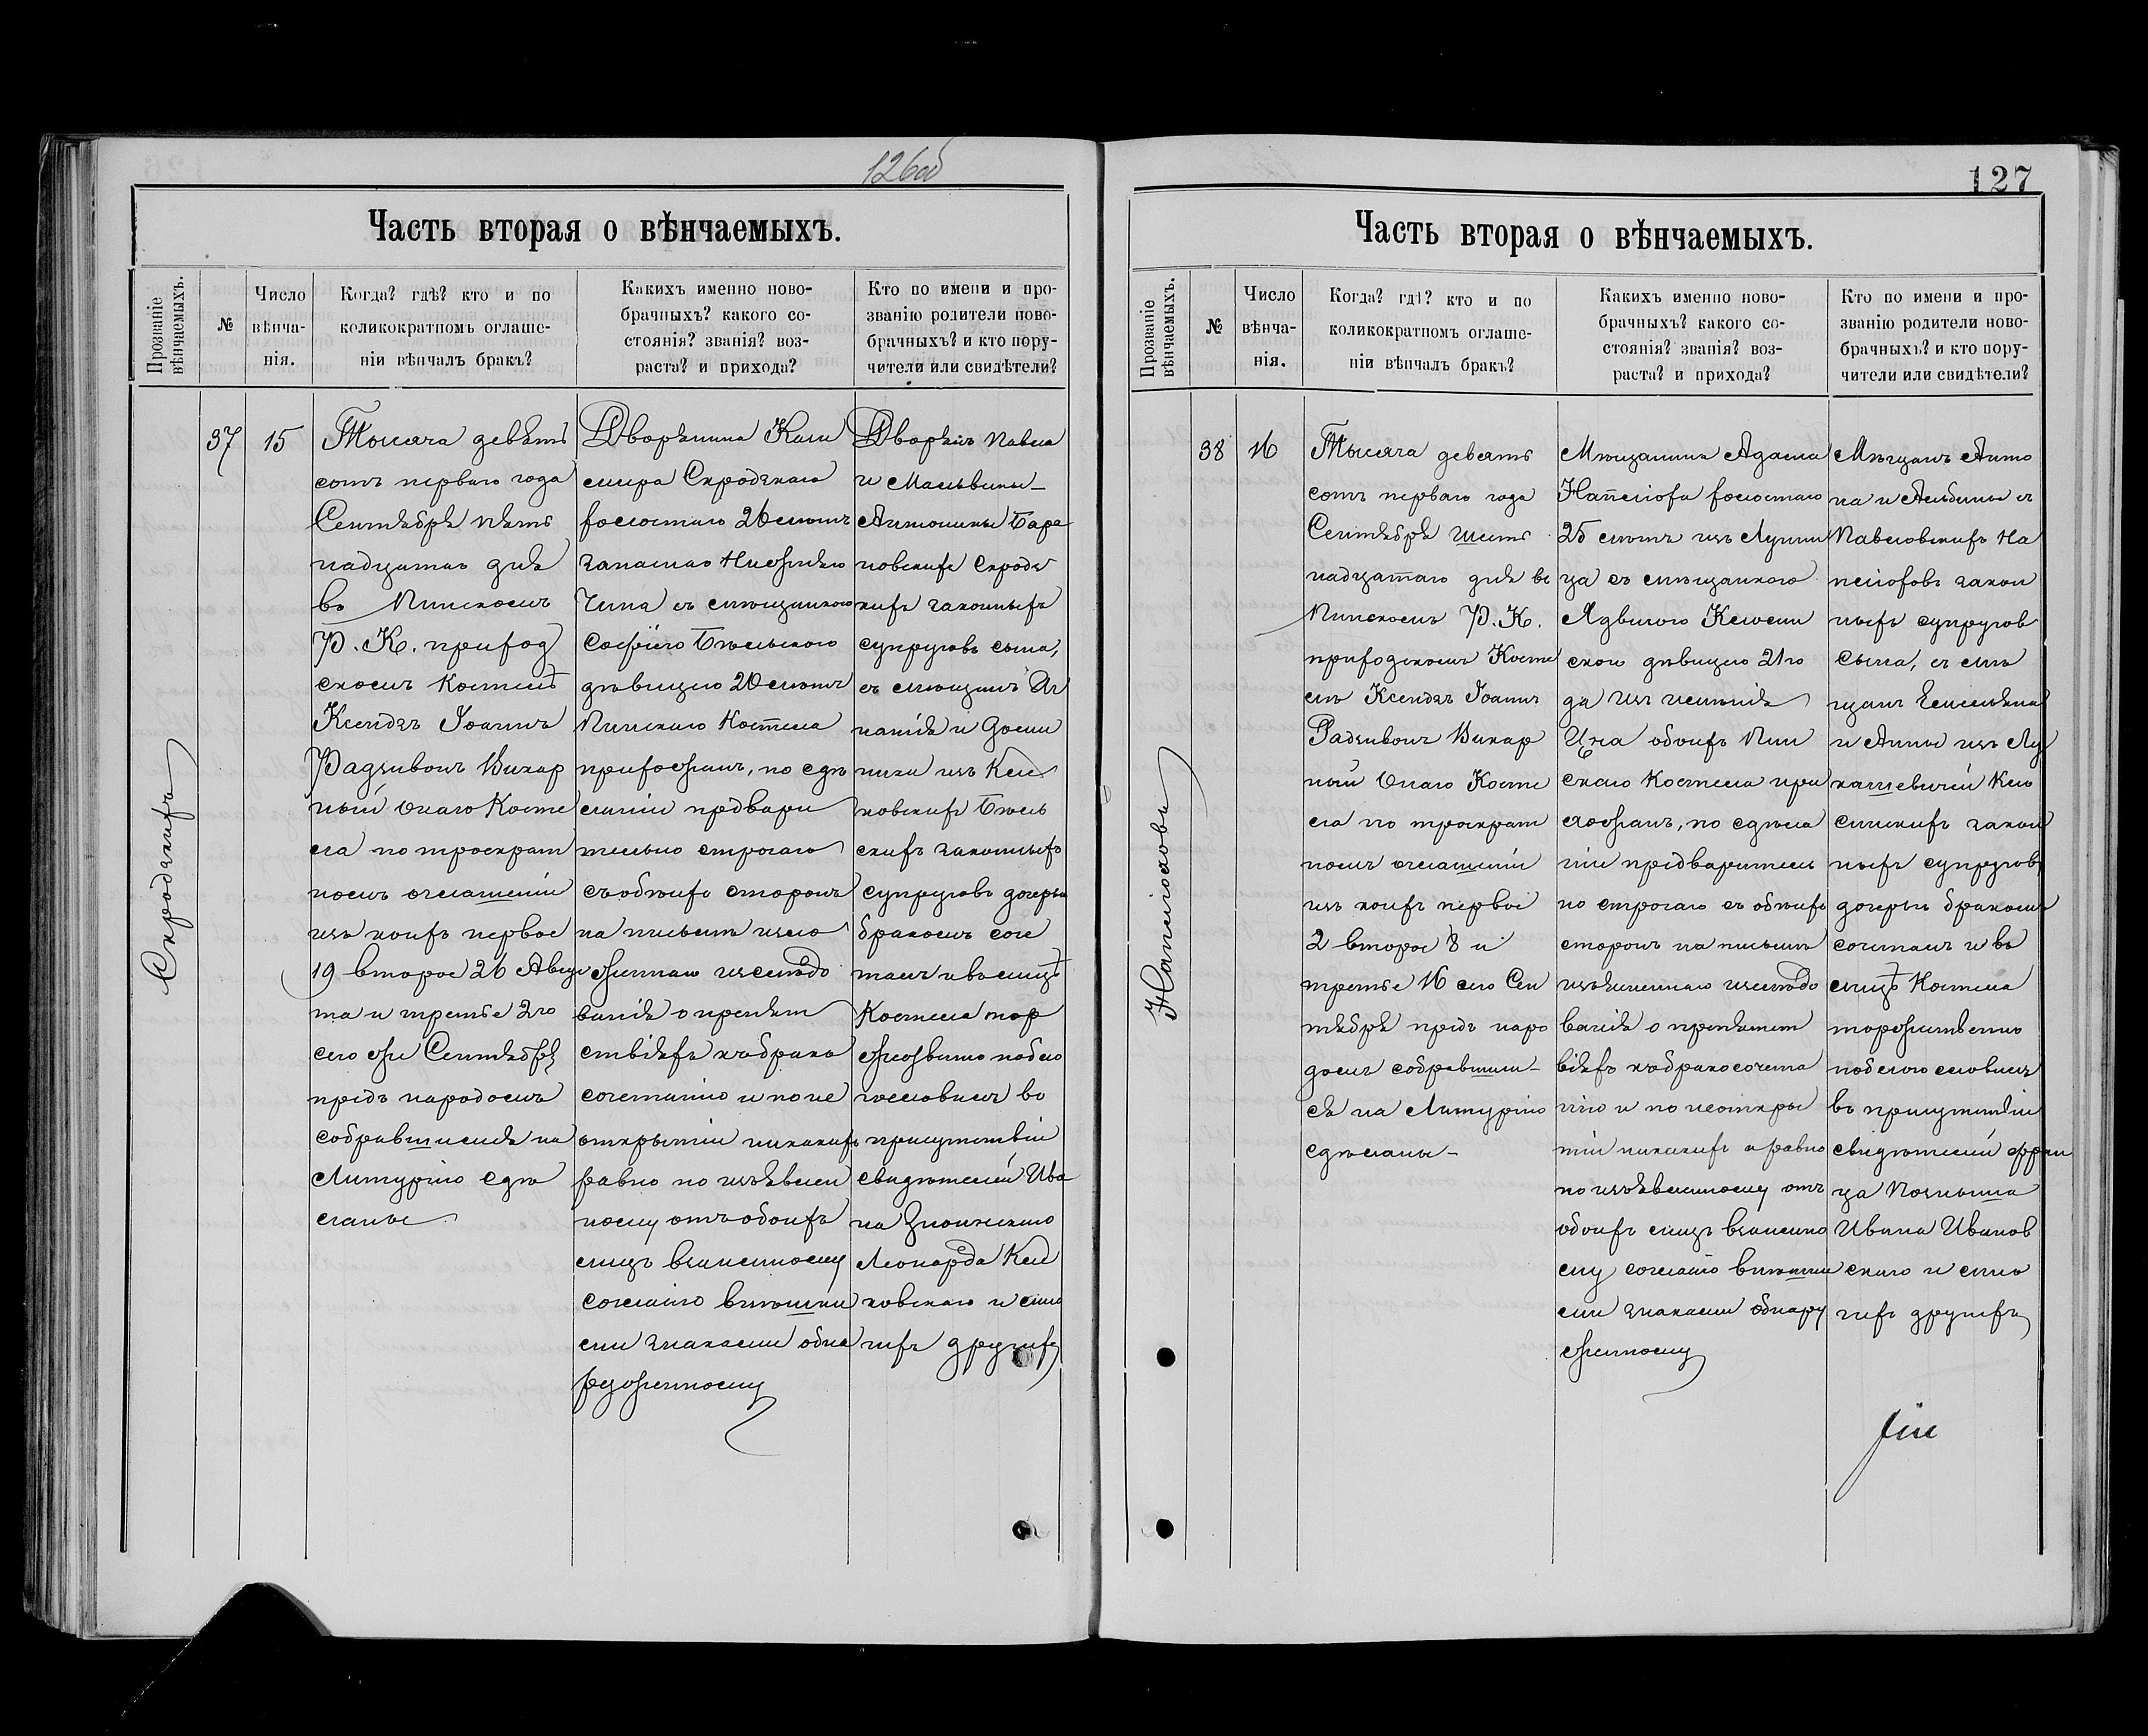 126об
Часть вторая о вѣнчаемыхъ.
Прозваніе вѣнчаемыхъ.
№
Число вѣнча-
нія.
Когда? гдѣ? кто и по
коликократномъ оглаше-
ніи вѣнчалъ бракъ?
Какихъ именно ново-
брачныхъ? какого со-
стоянія? званія? воз-
раста? и прихода?
Кто по имени и про-
званію родители ново-
брачныхъ? и кто пору-
чители или свидѣтели?
Скродзкихъ
37
15
Тысяча девять
сотъ перваго года
Сентября пят
надцатаго дня
въ Пинскомъ
Р. К. приход
скомъ Костелѣ
Ксендзъ Іоаннъ
Радзивонъ Викар
ный онаго Косте
ла по троекрат
номъ оглашеніи
изъ коихъ первое
19 второе 26 Авгус
та и третье 2го
сего же Сентября
предъ народомъ
собравшимся на
Литургію сдѣ
ланы
Дворянина Кази
мира Скродзкаго
холостаго 26 лѣтъ
запаснаго Нижняго
Чина съ мѣщанкою
Софіею Бѣльскою
дѣвицею 20 лѣтъ
Пинскаго Костела
прихожанъ, по сдѣ
ланіи предвари
тельно строгаго
съ обѣихъ сторонъ
на письмѣ изло
женнаго изслѣдо
ванія о препят
ствіяхъ къ брако
сочетанію и по не
открытіи никакихъ
равно по изъявлен
ному отъ обоихъ
лицъ взаимному
согласію внѣшни
ми знаками обна
руженному
Дворянъ Павла
и Мальвины-
Антонины Бара
новскихъ Скродз
кихъ законныхъ
супруговъ сына,
съ мѣщанъ Иг
натія и Доми
ники изъ
ковскихъ Бѣль
скихъ законныхъ
супруговъ дочерью
бракомъ соче
талъ и въ лицѣ
Костела тор
жественно побла
гословилъ въ
присутствіи
свидѣтелей Ива
на
Леонарда
ковскаго и мно
гихъ другихъ
127
Часть вторая о вѣнчаемыхъ.
Прозваніе вѣнчаемыхъ.
№
Число вѣнча-
нія.
Когда? гдѣ? кто и по
коликократномъ оглаше-
ніи вѣнчалъ бракъ?
Какихъ именно ново-
брачныхъ? какого со-
стоянія? званія? воз-
раста? и прихода?
Кто по имени и про-
званію родители ново-
брачныхъ? и кто пору-
чители или свидѣтели?
38
16
Тысяча девять
сотъ перваго года
Сентября шест
надцатаго дня въ
Пинскомъ Р. К.
приходскомъ Косте
лѣ Ксендзъ Іоаннъ
Радзивонъ Викар
ный онаго Косте
ла по троекрат
номъ оглашеніи
изъ коихъ первое
2 второе 8 и
третье 16 сего Сен
тября предъ наро
домъ собравшим-
ся на Литургію
сдѣланы-
Мѣщанина Адама
холостаго
25 лѣтъ изъ Лунин
ца съ мѣщанкою
Ядвигою
скою дѣвицею 21го
да изъ имѣнія
обоихъ Пин
скаго Костела при
хожанъ, по сдѣла
ніи предваритель
но строгаго съ обѣихъ
сторонъ на письмѣ
изъясненнаго изслѣдо
ванія о препятст
віяхъ къ бракосочета
нію и по неоткры
тіи никакихъ а равно
по изъявленному отъ
обоихъ лицъ взаимно
му согласію внѣшни
ми знаками обнару
женному
Мѣщанъ Анто
на и Альбины съ
Павловскихъ
закон
ныхъ супруговъ
сына, съ мѣ
щанъ Емельяна
и Анны изъ Лу
кашевичей
законныхъ супруговъ
дочерью бракомъ
сочеталъ и въ
лицѣ Костела
торжественно
поблагословилъ
въ присутствіи
свидѣтелей Фран
ца
Ивана Иванов
скаго и мно
гихъ другихъ